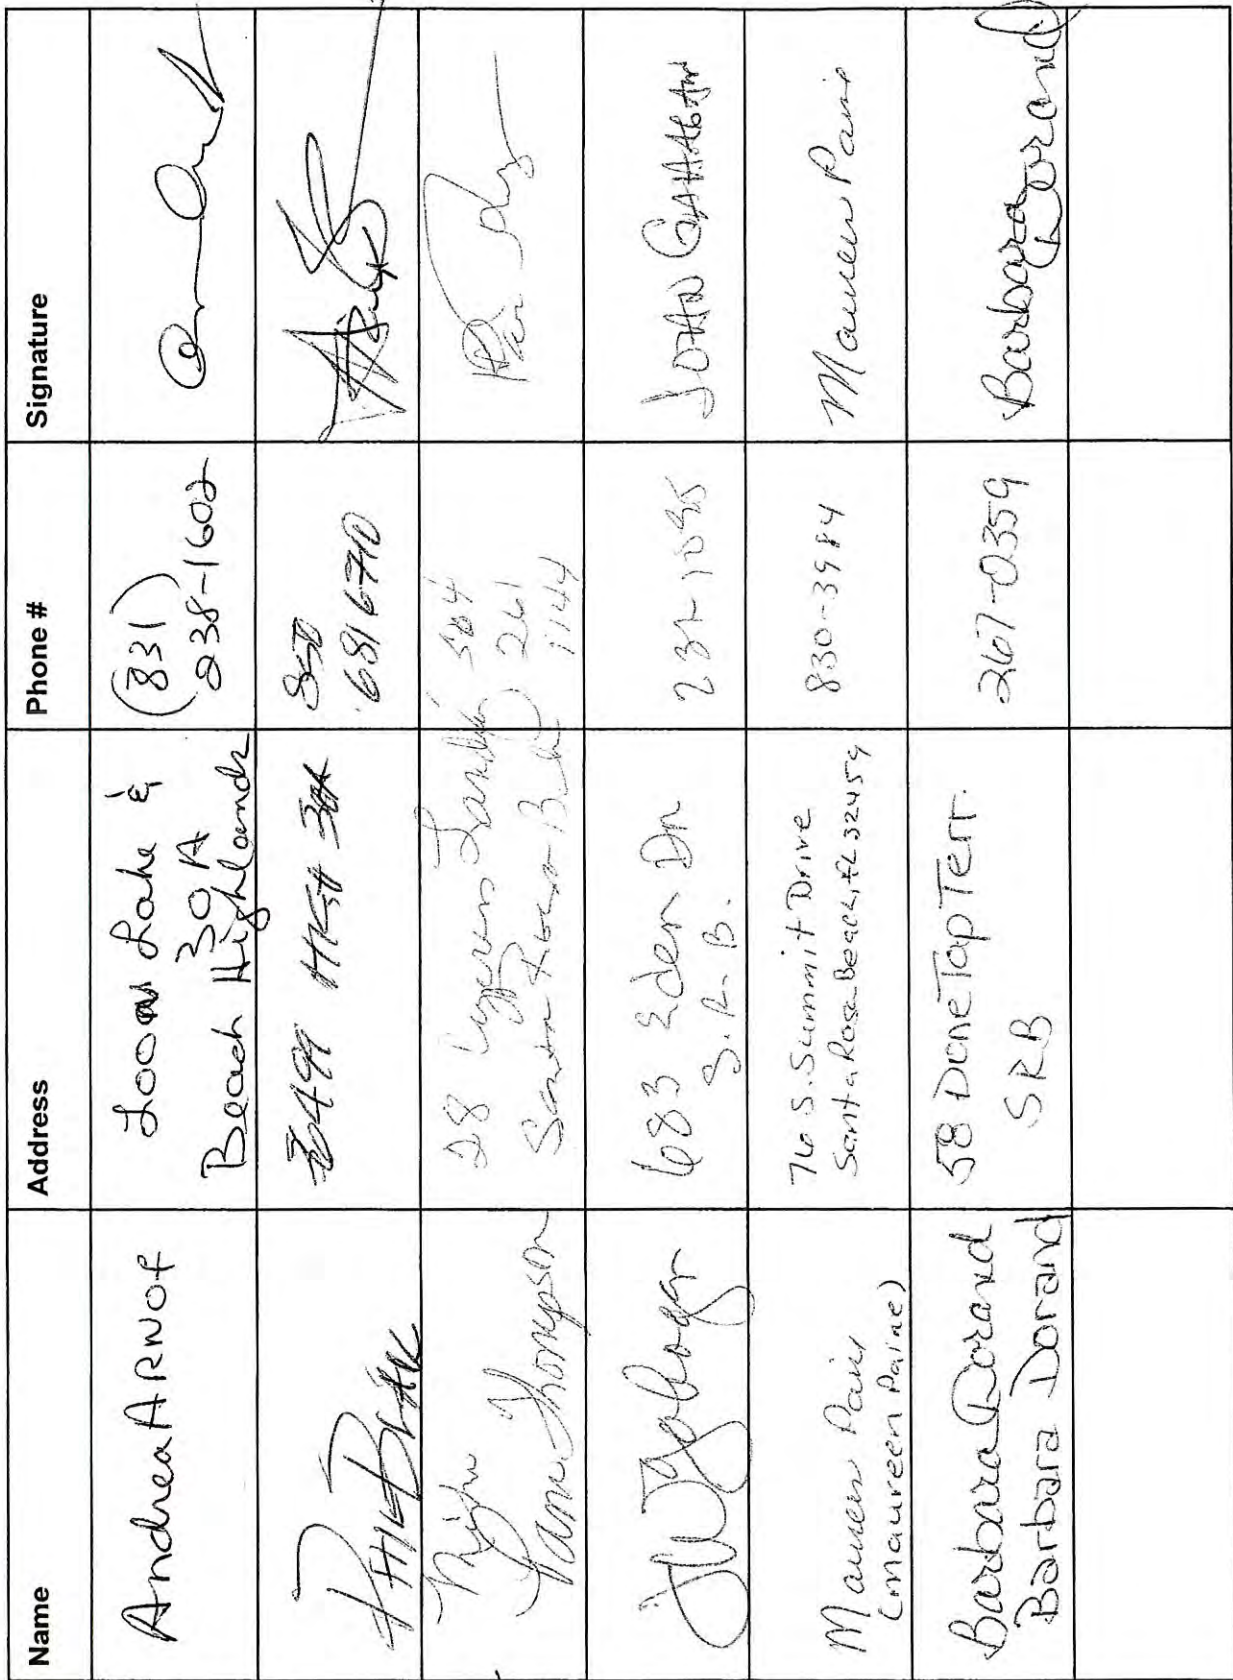 Name Address Phone # Signature
Andrea ARNOf
Loon Lake &
30A
Beach Highlands
(831)
238-1602
PHil BLAK
6499 30A
850
6816710
Pam Thompson
28 Cypress Landin
Santa Rosa Bch
504
261
1144
683 Eden Dr
S. R. B.
231-1035
JOHN GAHAGAN
Maureen Pain
(Maureen Paine)
76 S. Summit Drive
Santa Rosa Beach, FL 32459
830-3984
Maureen Pain
Barbara Dorand
Barbara Dorand
58 Dune Top Terr.
SRB
267-0359
Barbara
Dorand